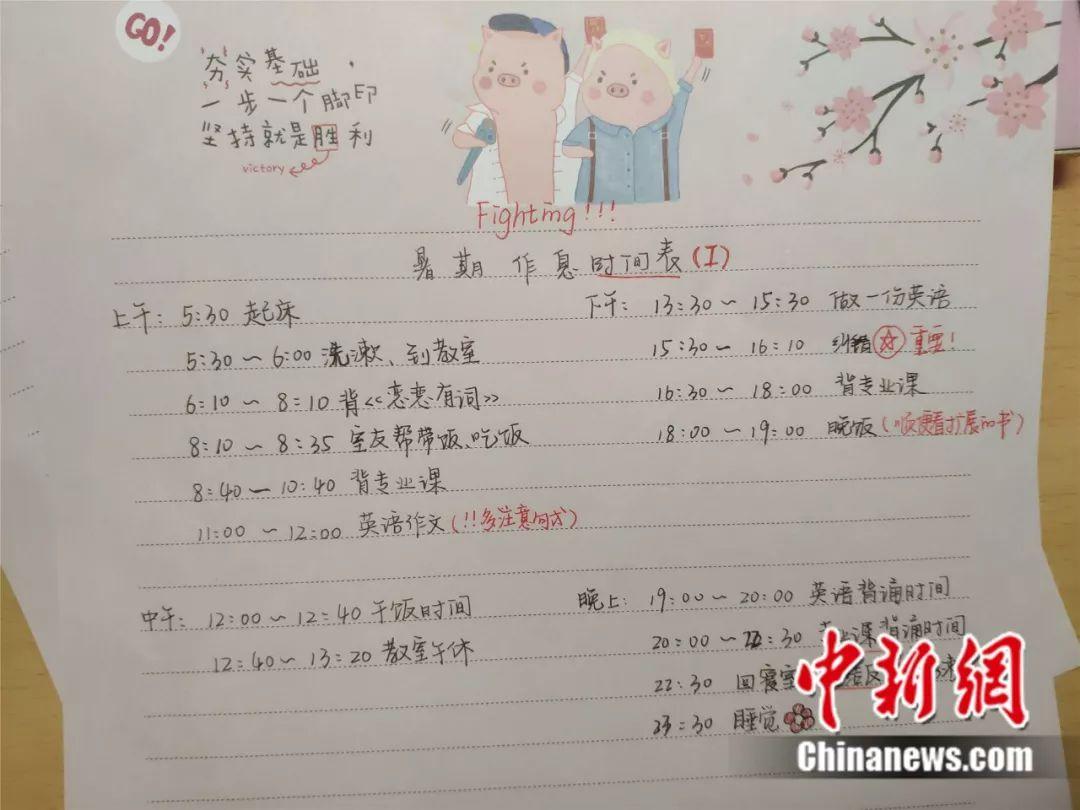 GO!
夯实基础
一步一个脚印
坚持就是胜利
victory
Fighting!!!
暑期作息时间表(I)
上午: 5:30 起床
5:30~6:00 洗漱、到教室
6:10~8:10 背<<恋恋有词>>
8:10~8:35 室友帮带饭、吃饭
8:40~10:40 背专业课
11:00~12:00 英语作文(!!多注意句式)
下午: 13:30~15:30 做一份英语
15:30~16:10 纠错 重要!
16:30~18:00 背专业课
18:00~19:00 晚饭(顺便看扩展的书)
中午: 12:00~12:40 午饭时间
12:40~13:20 教室午休
晚上: 19:00~20:00 英语背诵时间
20:00~22:30 专业课背诵时间
22:30 回寝室
23:30 睡觉
中新网
Chinanews.com